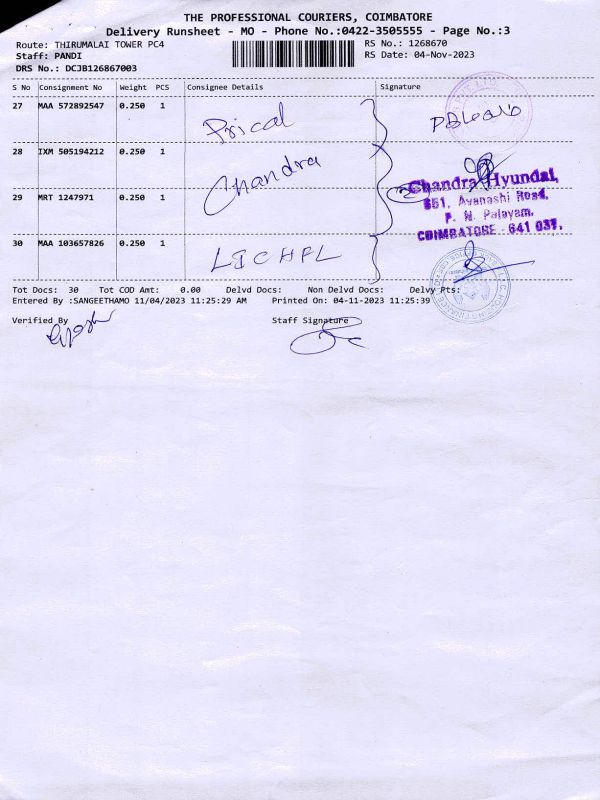 THE PROFESSIONAL COURIERS, COIMBATORE
Delivery Runsheet - MO - Phone No.:0422-3505555 - Page No.:3
Route: THIRUMALAI TOWER PC4 RS No.: 1268670
Staff: PANDI RS Date: 04-Nov-2023
DRS No.: DCJB126867003
S No Consignment No Weight PCS Consignee Details Signature
27 MAA 572892547 0.250 1 Prical
28 IXM 505194212 0.250 1 Chandra
Chandra Hyundai,
29 MRT 1247971 0.250 1
651, Avanashi Road,
P. N. Palayam,
COIMBATORE - 641 037.
30 MAA 103657826 0.250 1 LICHFL
Tot Docs: 30 Tot COD Amt: 0.00 Delvd Docs: Non Delvd Docs: Delvy Pts:
Entered By :SANGEETHAMO 11/04/2023 11:25:29 AM Printed On: 04-11-2023 11:25:39
Verified By Staff Signature